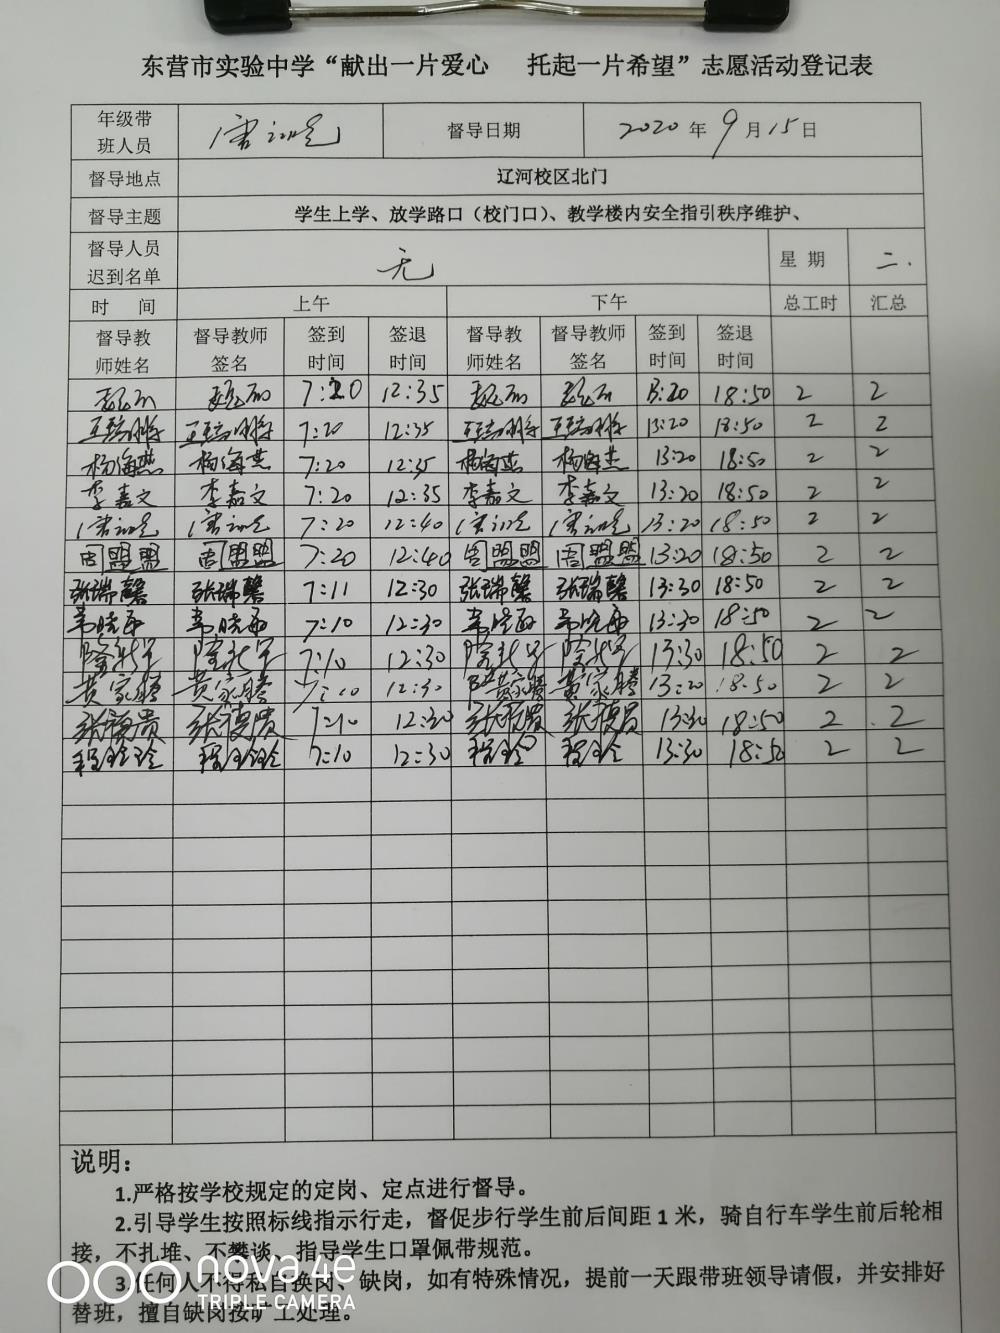 东营市实验中学“献出一片爱心 托起一片希望”志愿活动登记表
年级带班人员 督导日期 2020年9月15日
督导地点 辽河校区北门
督导主题 学生上学、放学路口（校门口）、教学楼内安全指引秩序维护、
督导人员迟到名单 无 星期 二.
时 间 上午 下午 总工时 汇总
督导教师姓名 督导教师签名 签到时间 签退时间 督导教师姓名 督导教师签名 签到时间 签退时间
7:20 12:35 13:20 18:50 2 2
7:20 12:35 13:20 18:50 2 2
杨海燕 杨海燕 7:20 12:35 杨海燕 杨海燕 13:20 18:50 2 2
李嘉文 李嘉文 7:20 12:35 李嘉文 李嘉文 13:20 18:50 2 2
7:20 12:40 13:20 18:50 2 2
周盟盟 周盟盟 7:20 12:40 周盟盟 周盟盟 13:20 18:50 2 2
张瑞馨 张瑞馨 7:11 12:30 张瑞馨 张瑞馨 13:30 18:50 2 2
7:10 12:30 13:30 18:50 2 2
7:10 12:30 13:30 18:50 2 2
黄家腾 黄家腾 7:10 12:30 黄家腾 黄家腾 13:20 18:50 2 2
7:10 12:30 13:30 18:50 2 2
程玲玲 7:10 12:30 13:30 18:50 2 2
说明：
1.严格按学校规定的定岗、定点进行督导。
2.引导学生按照标线指示行走，督促步行学生前后间距1米，骑自行车学生前后轮相
接，不扎堆、不攀谈、指导学生口罩佩带规范。
3.任何人不得私自换岗、缺岗，如有特殊情况，提前一天跟带班领导请假，并安排好
替班，擅自缺岗按旷工处理。
nova 4e
TRIPLE CAMERA